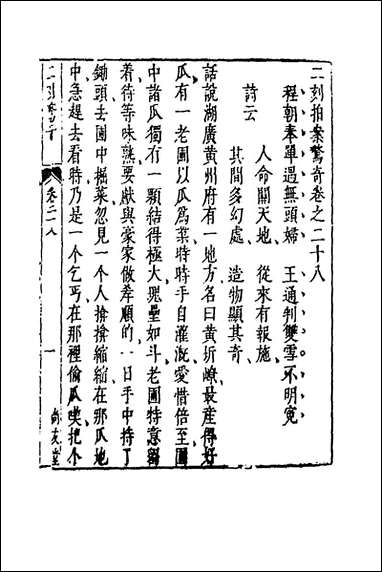 二刻拍案驚奇卷之二十八
程朝奉單遇無頭婦　王通判雙雪不明冤
詩云
人命關天地　從來有報施
其間多幻處　造物顯其奇
話說湖廣黃州府有一地方名曰黃圻嶛最産得好
瓜有一老圃以瓜爲業時時手自灌漑愛惜倍至圃
中諸瓜獨有一顆結得極大塊壘如斗老圃特意留
着待等味熟要獻與豪家做孝順的一日手中持了
鋤頭去圃中掘菜忽見一个人掩掩縮縮在那瓜地
中急趕去看時乃是一个乞丐在那裡偷瓜喫把个
二刻驚奇
卷二八
一
尚友堂